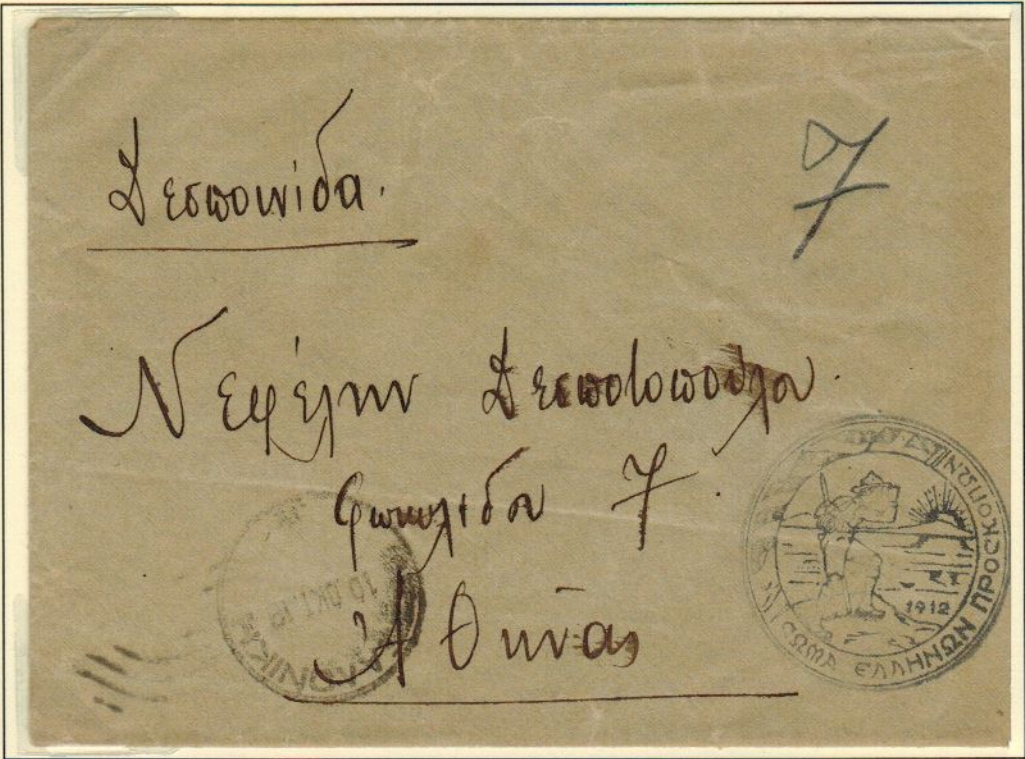 7
Δεσποινίδα.
Νεφέλην Δεσποτοπούλου.
Φωκυλίδου 7.
Ἀθήνας
10 ΟΚΤ.
ΣΩΜΑ ΕΛΛΗΝΩΝ ΠΡΟΣΚΟΠΩΝ
1912